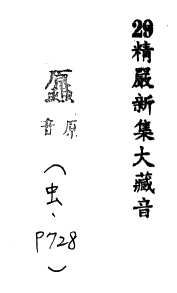 29精嚴新集大藏音
原音
(虫、P728)